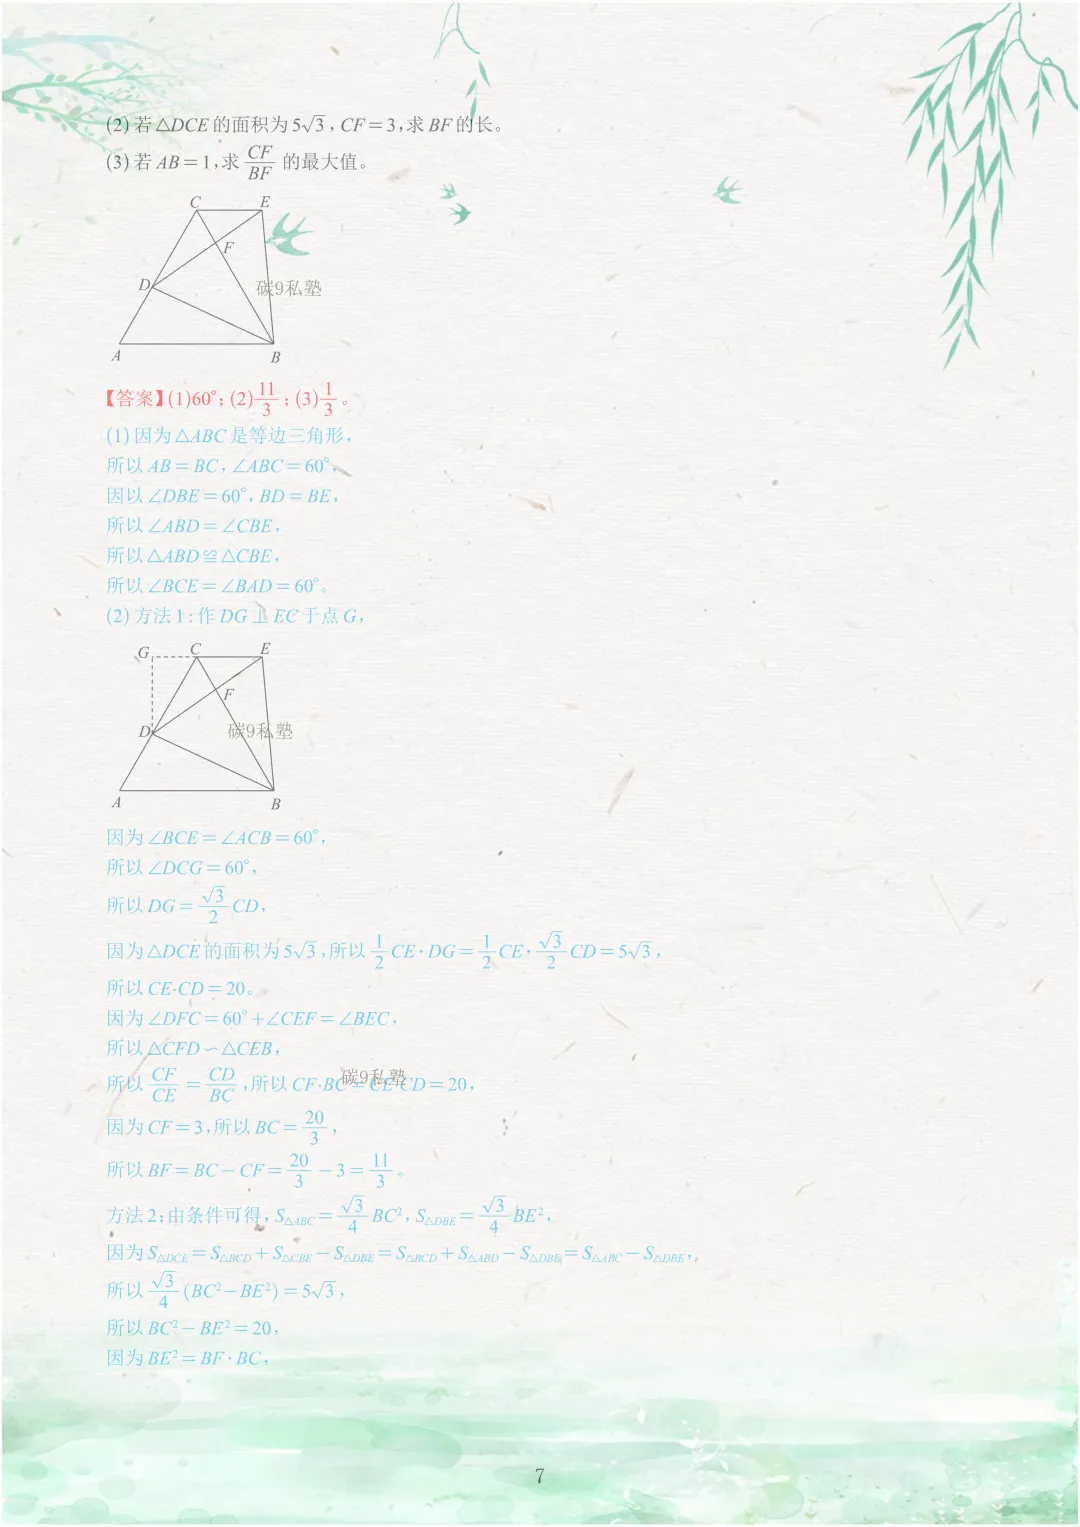 (2)若△DCE的面积为5√3,CF=3,求BF的长。
(3)若AB=1,求CF/BF的最大值。
C E
F
D
碳9私塾
A B
【答案】(1)60°;(2)11/3;(3)1/3。
(1)因为△ABC是等边三角形,
所以AB=BC,∠ABC=60°,
因以∠DBE=60°,BD=BE,
所以∠ABD=∠CBE,
所以△ABD≌△CBE,
所以∠BCE=∠BAD=60°。
(2)方法1:作DG⊥EC于点G,
G C E
F
D
碳9私塾
A B
因为∠BCE=∠ACB=60°,
所以∠DCG=60°,
所以DG=√3/2 CD,
因为△DCE的面积为5√3,所以1/2 CE·DG=1/2 CE·√3/2 CD=5√3,
所以CE·CD=20。
因为∠DFC=60°+∠CEF=∠BEC,
所以△CFD∽△CEB,
所以CF/CE=CD/BC,所以CF·BC=CE·CD=20,
碳9私塾
因为CF=3,所以BC=20/3,
所以BF=BC-CF=20/3-3=11/3。
方法2:由条件可得,S△ABC=√3/4 BC²,S△DBE=√3/4 BE²,
因为S△DCE=S△BCD+S△CBE-S△DBE=S△BCD+S△ABD-S△DBE=S△ABC-S△DBE,
所以√3/4(BC²-BE²)=5√3,
所以BC²-BE²=20,
因为BE²=BF·BC,
7